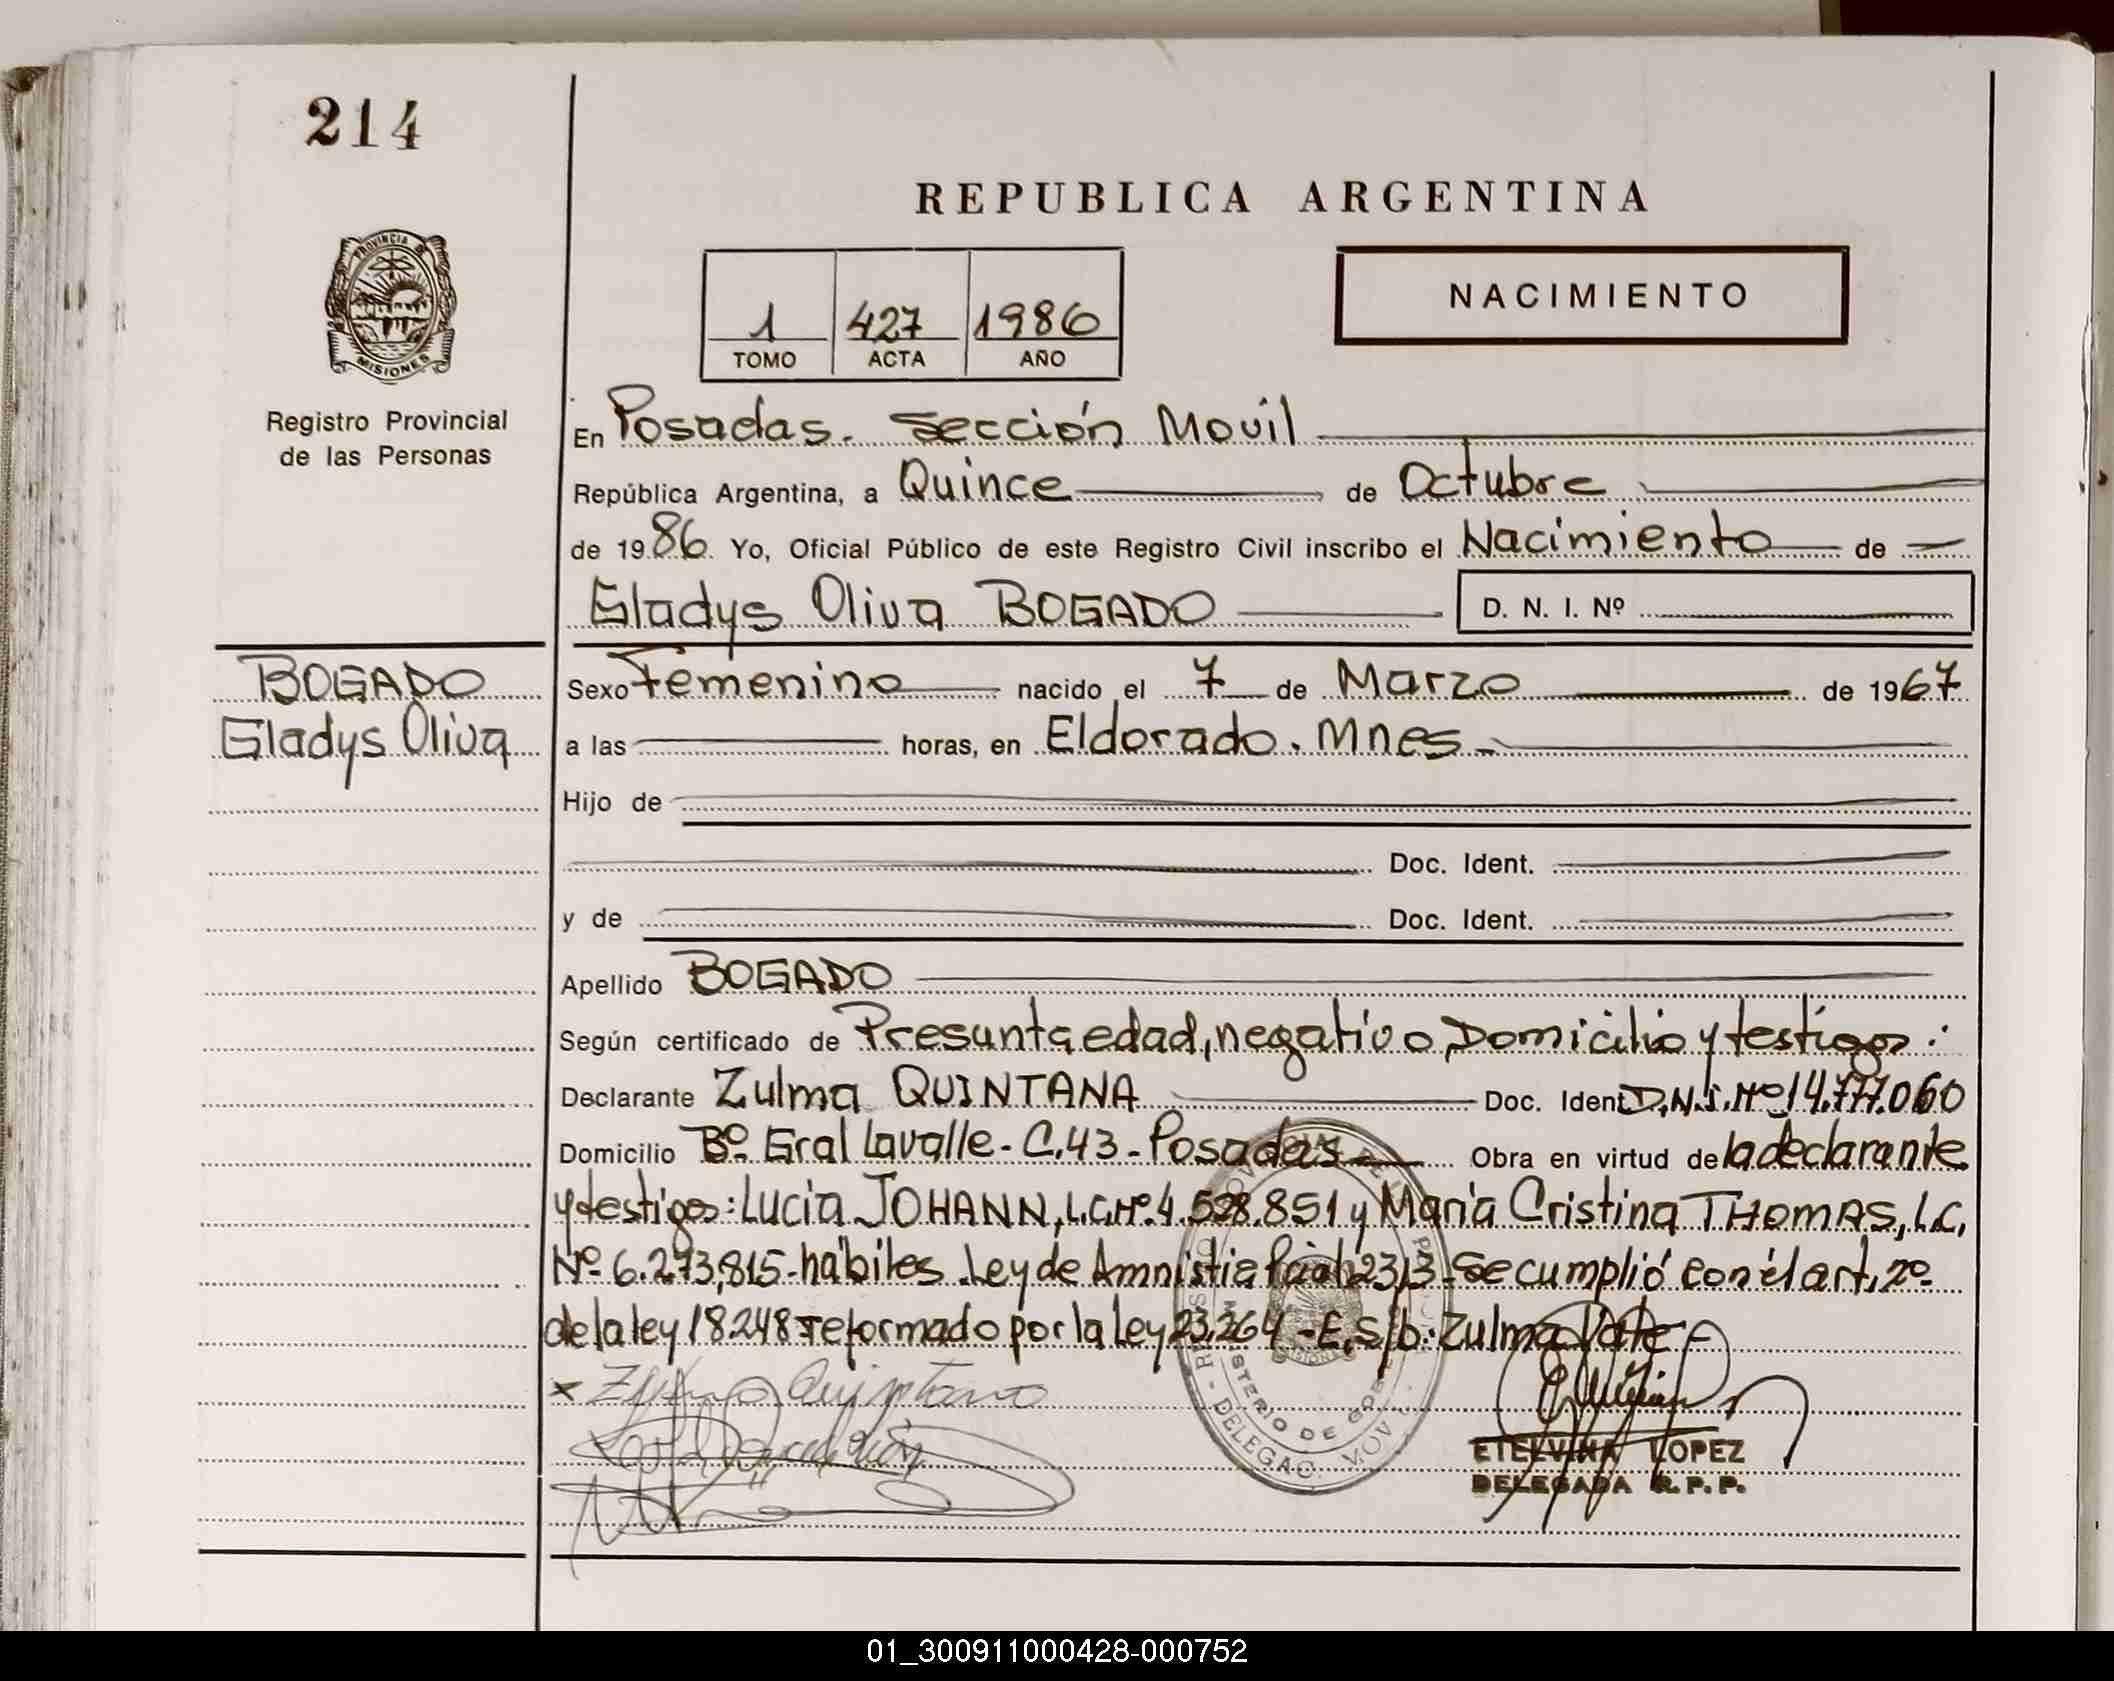 214
REPUBLICA ARGENTINA
PROVINCIA DE
MISIONES
Registro Provincial
de las Personas
1 427 1986
TOMO ACTA AÑO
NACIMIENTO
En Posadas. Sección Movil
República Argentina, a Quince de Octubre
de 1986. Yo, Oficial Público de este Registro Civil inscribo el Nacimiento de
Gladys Oliva BOGADO D. N. I. Nº
BOGADO
Gladys Oliva
Sexo Femenino nacido el 7 de Marzo de 1967
a las horas, en Eldorado. Mnes.
Hijo de
Doc. Ident.
y de Doc. Ident.
Apellido BOGADO
Según certificado de Presunta edad, negativo, Domicilio y testigos:
Declarante Zulma QUINTANA Doc. Ident D.N.I. Nº 14.777.060
Domicilio Bº Gral Lavalle - C.43 - Posadas Obra en virtud de la declarante
y testigos: Lucia JOHANN, L.C. Nº 4.528.851 y Maria Cristina THOMAS, L.C.
Nº 6.273.815 - hábiles. Ley de Amnistia Se cumplió con el art. 2º
de la ley 18248 reformado por la Ley 23.264 - E. s/b: Zulma Vale
x Zulma Quintana
ETELVINA LOPEZ
DELEGADA R.P.P.
01_300911000428-000752